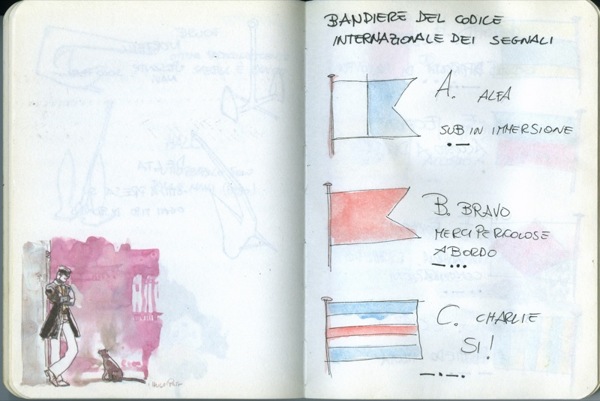 BANDIERE DEL CODICE
INTERNAZIONALE DEI SEGNALI
A. ALFA
SUB IN IMMERSIONE
B. BRAVO
MERCI PERICOLOSE
A BORDO
C. CHARLIE
SI!